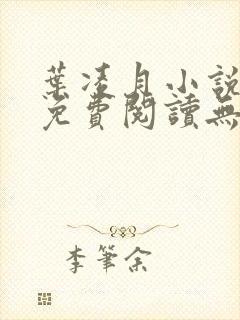 葉凌月小說
免費閱讀無
李筆余